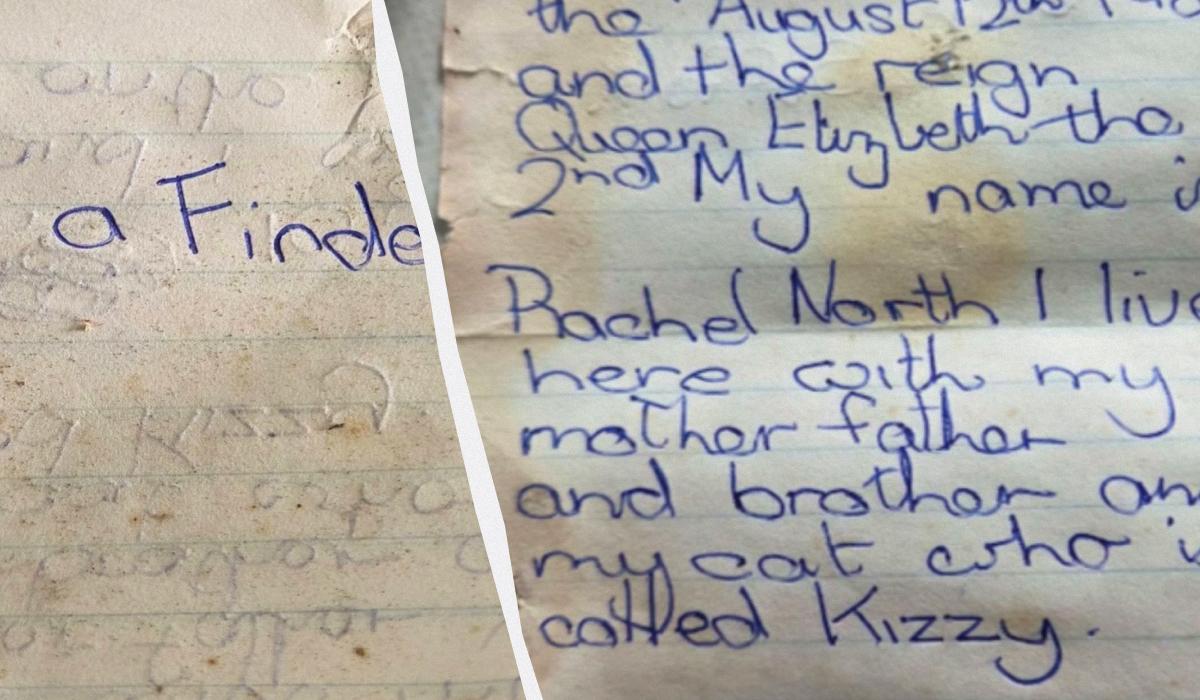 a Finde
the August 12th 
and the reign
Queen Elizbeth the
2nd My name is
Rachel North I live
here with my
mother father
and brother an
my cat who i
called Kizzy.